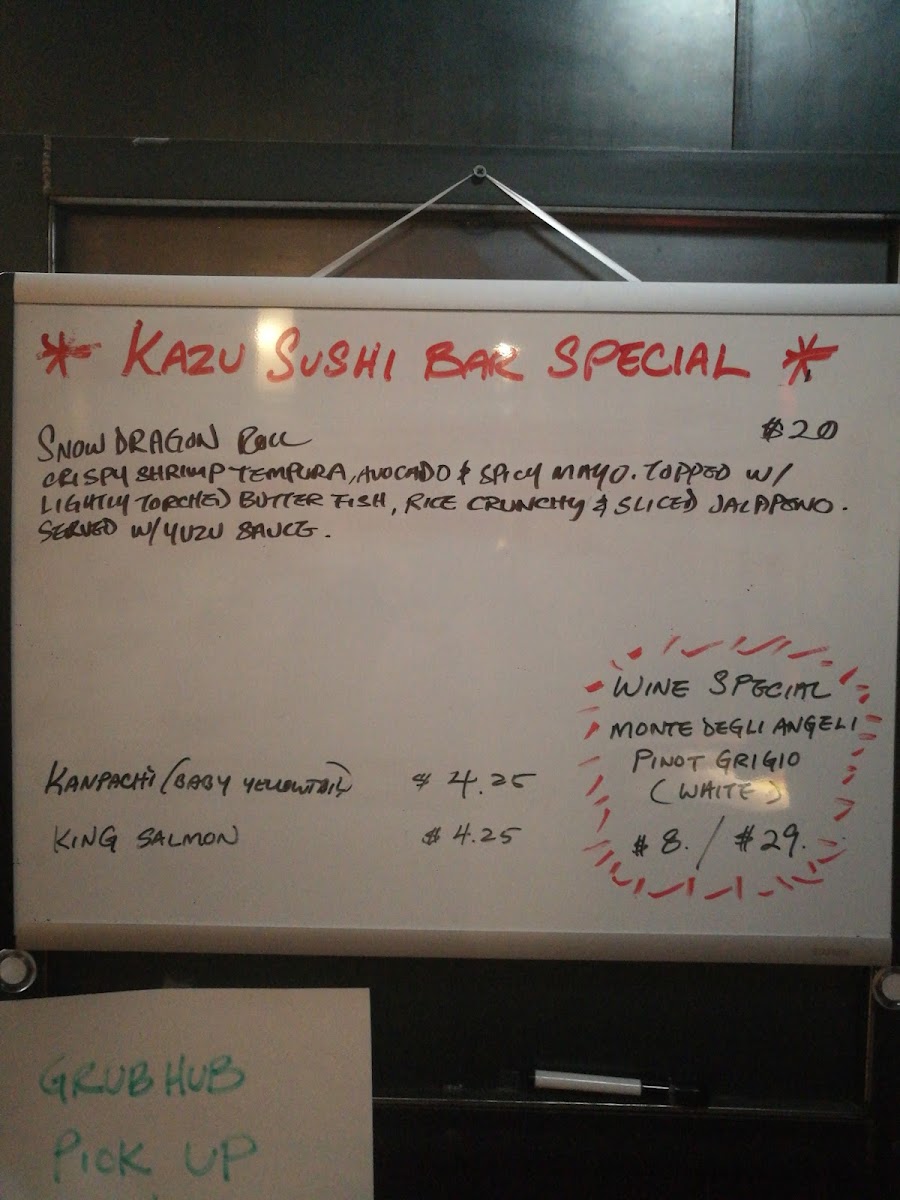 * KAZU SUSHI BAR SPECIAL *
SNOW DRAGON ROLL $20
CRISPY SHRIMP TEMPURA, AVOCADO & SPICY MAYO. TOPPED W/
LIGHTLY TORCHED BUTTER FISH, RICE CRUNCHY & SLICED JALAPENO.
SERVED W/ YUZU SAUCE.
WINE SPECIAL
MONTE DEGLI ANGELI
PINOT GRIGIO
(WHITE)
$8. / $29.
KANPACHI (BABY YELLOWTAIL) $4.25
KING SALMON $4.25
GRUBHUB
PICK UP